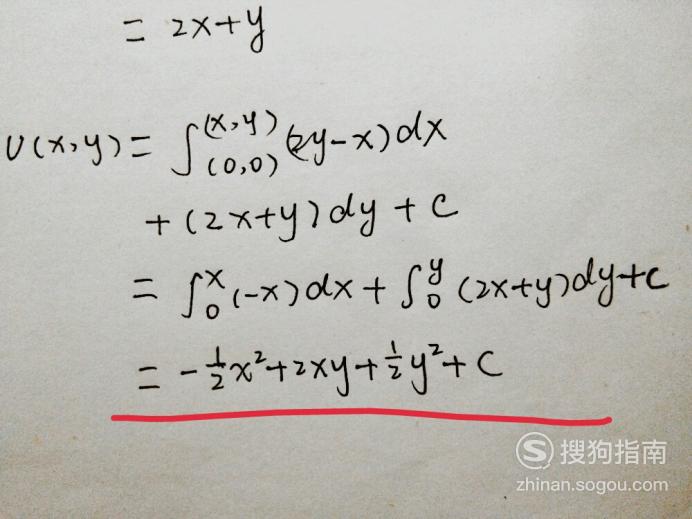 = 2x+y
U(x,y) = ∫_{(0,0)}^{(x,y)} (2y-x)dx
+(2x+y)dy+C
= ∫_0^x (-x)dx + ∫_0^y (2x+y)dy+C
= -1/2 x²+2xy+1/2 y²+C
S 搜狗指南
zhinan.sogou.com